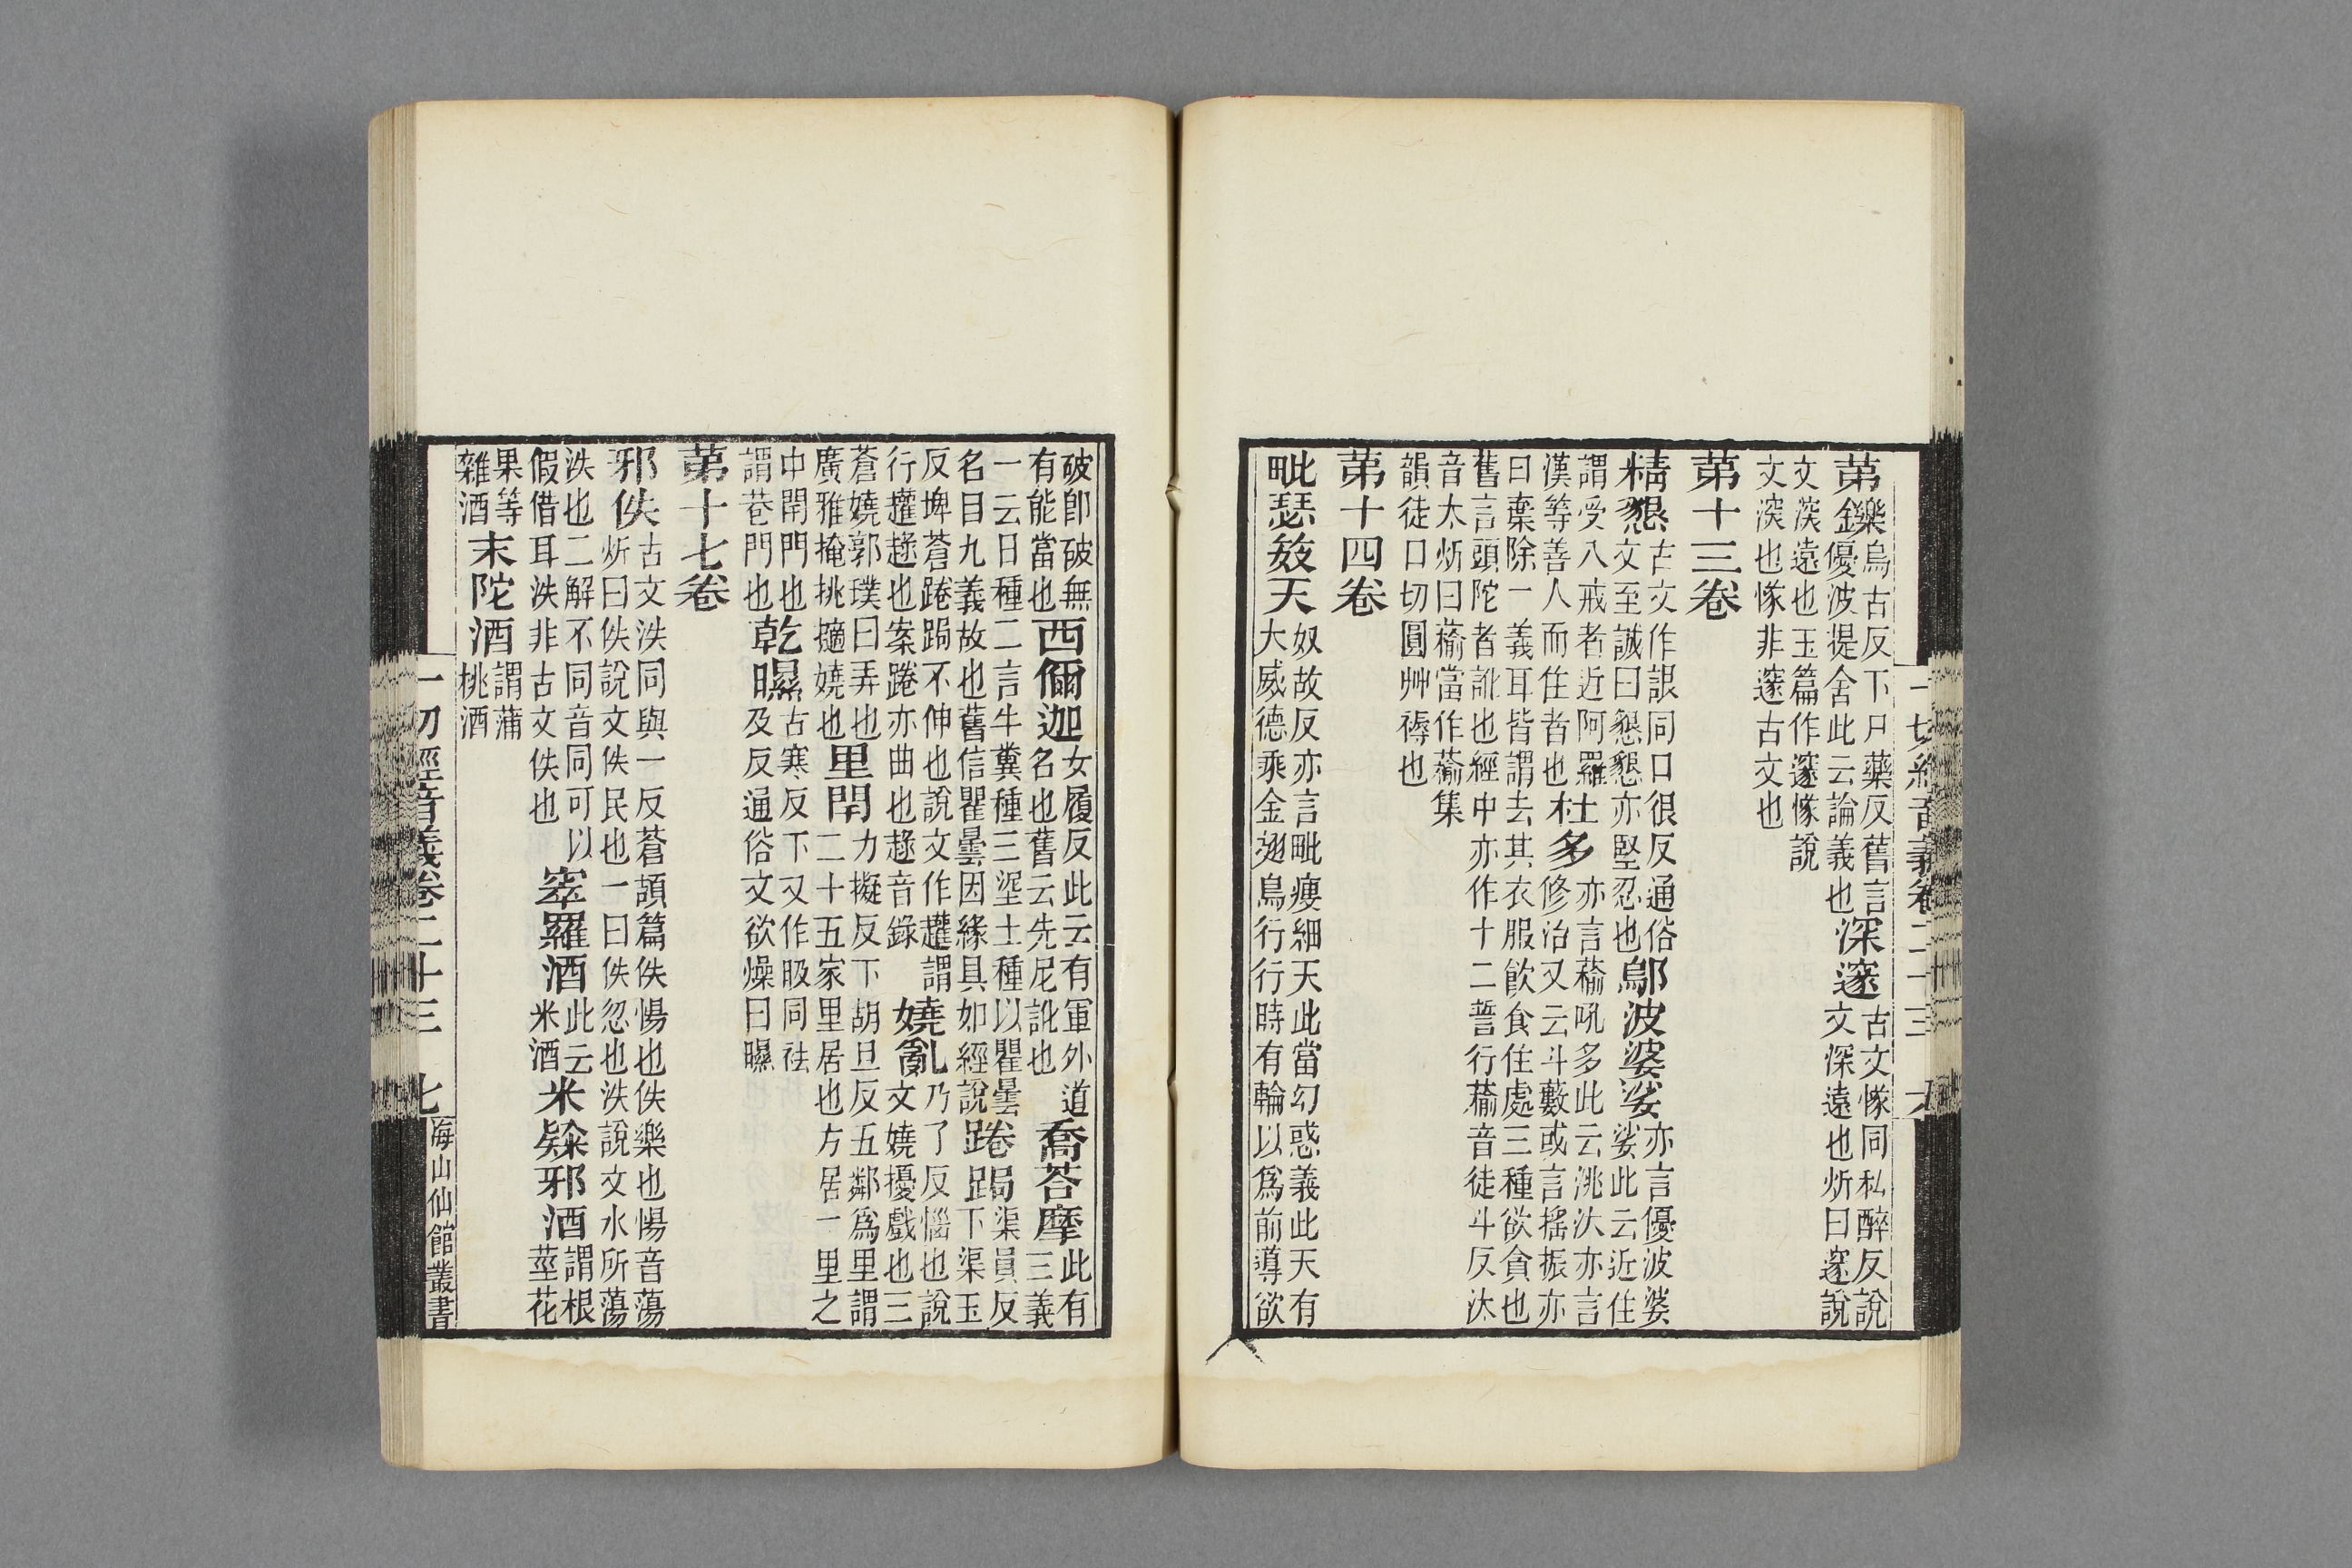 一切經音義卷二十三 六
第鑠烏古反下尸藥反舊言優波提舍此云論義也深邃古文㒸同私醉反說文深遠也炘曰邃說
文㴱遠也玉篇作邃㒸說文㴱也㒸非邃古文也
第十三卷
精懇古文作詪同口很反通俗文至誠曰懇懇亦堅忍也鄔波婆娑亦言優波婆娑此云近住
謂受八戒者近阿羅漢等善人而住者也杜多亦言吼多此云洮汰亦言修治又云斗藪或言搖振亦
曰棄除一義耳皆謂去其衣服飲食住處三種欲貪也舊言頭陀者訛也經中亦作十二誓行音徒斗反汰
音太炘曰當作集韻徒口切圓艸褥也
第十四卷
毗瑟笯天奴故反亦言毗瘦細天此當幻惑義此天有大威德乘金翅鳥行行時有輪以爲前導欲
破即破無有能當也西儞迦女履反此云有軍外道名也舊云先尼訛也喬荅摩此有三義
一云日種二言牛糞種三埿土種以瞿曇名目九義故也舊信瞿曇因緣具如經說踡跼渠員反下渠玉
反埤蒼踡跼不伸也說文作趯謂行趯趢也案踡亦曲也趢音錄嬈亂乃了反惱也說文嬈擾戲也三
蒼嬈郭璞曰弄也廣雅掩挑擿嬈也里閈力擬反下胡旦反五鄰爲里謂二十五家里居也方居一里之
中閈門也謂巷門也乾㬠古寒反下又作同祛及反通俗文欲燥曰㬠
第十七卷
邪佚古文泆同與一反蒼頡篇佚惕也佚樂也惕音蕩炘曰佚說文佚民也一曰佚忽也泆說文水所蕩
泆也二解不同音同可以假借耳泆非古文佚也窣羅酒此云米酒米隸邪酒謂根莖花
果等雜酒末陀酒謂蒲桃酒
一切經音義卷二十三 七 海山仙館叢書